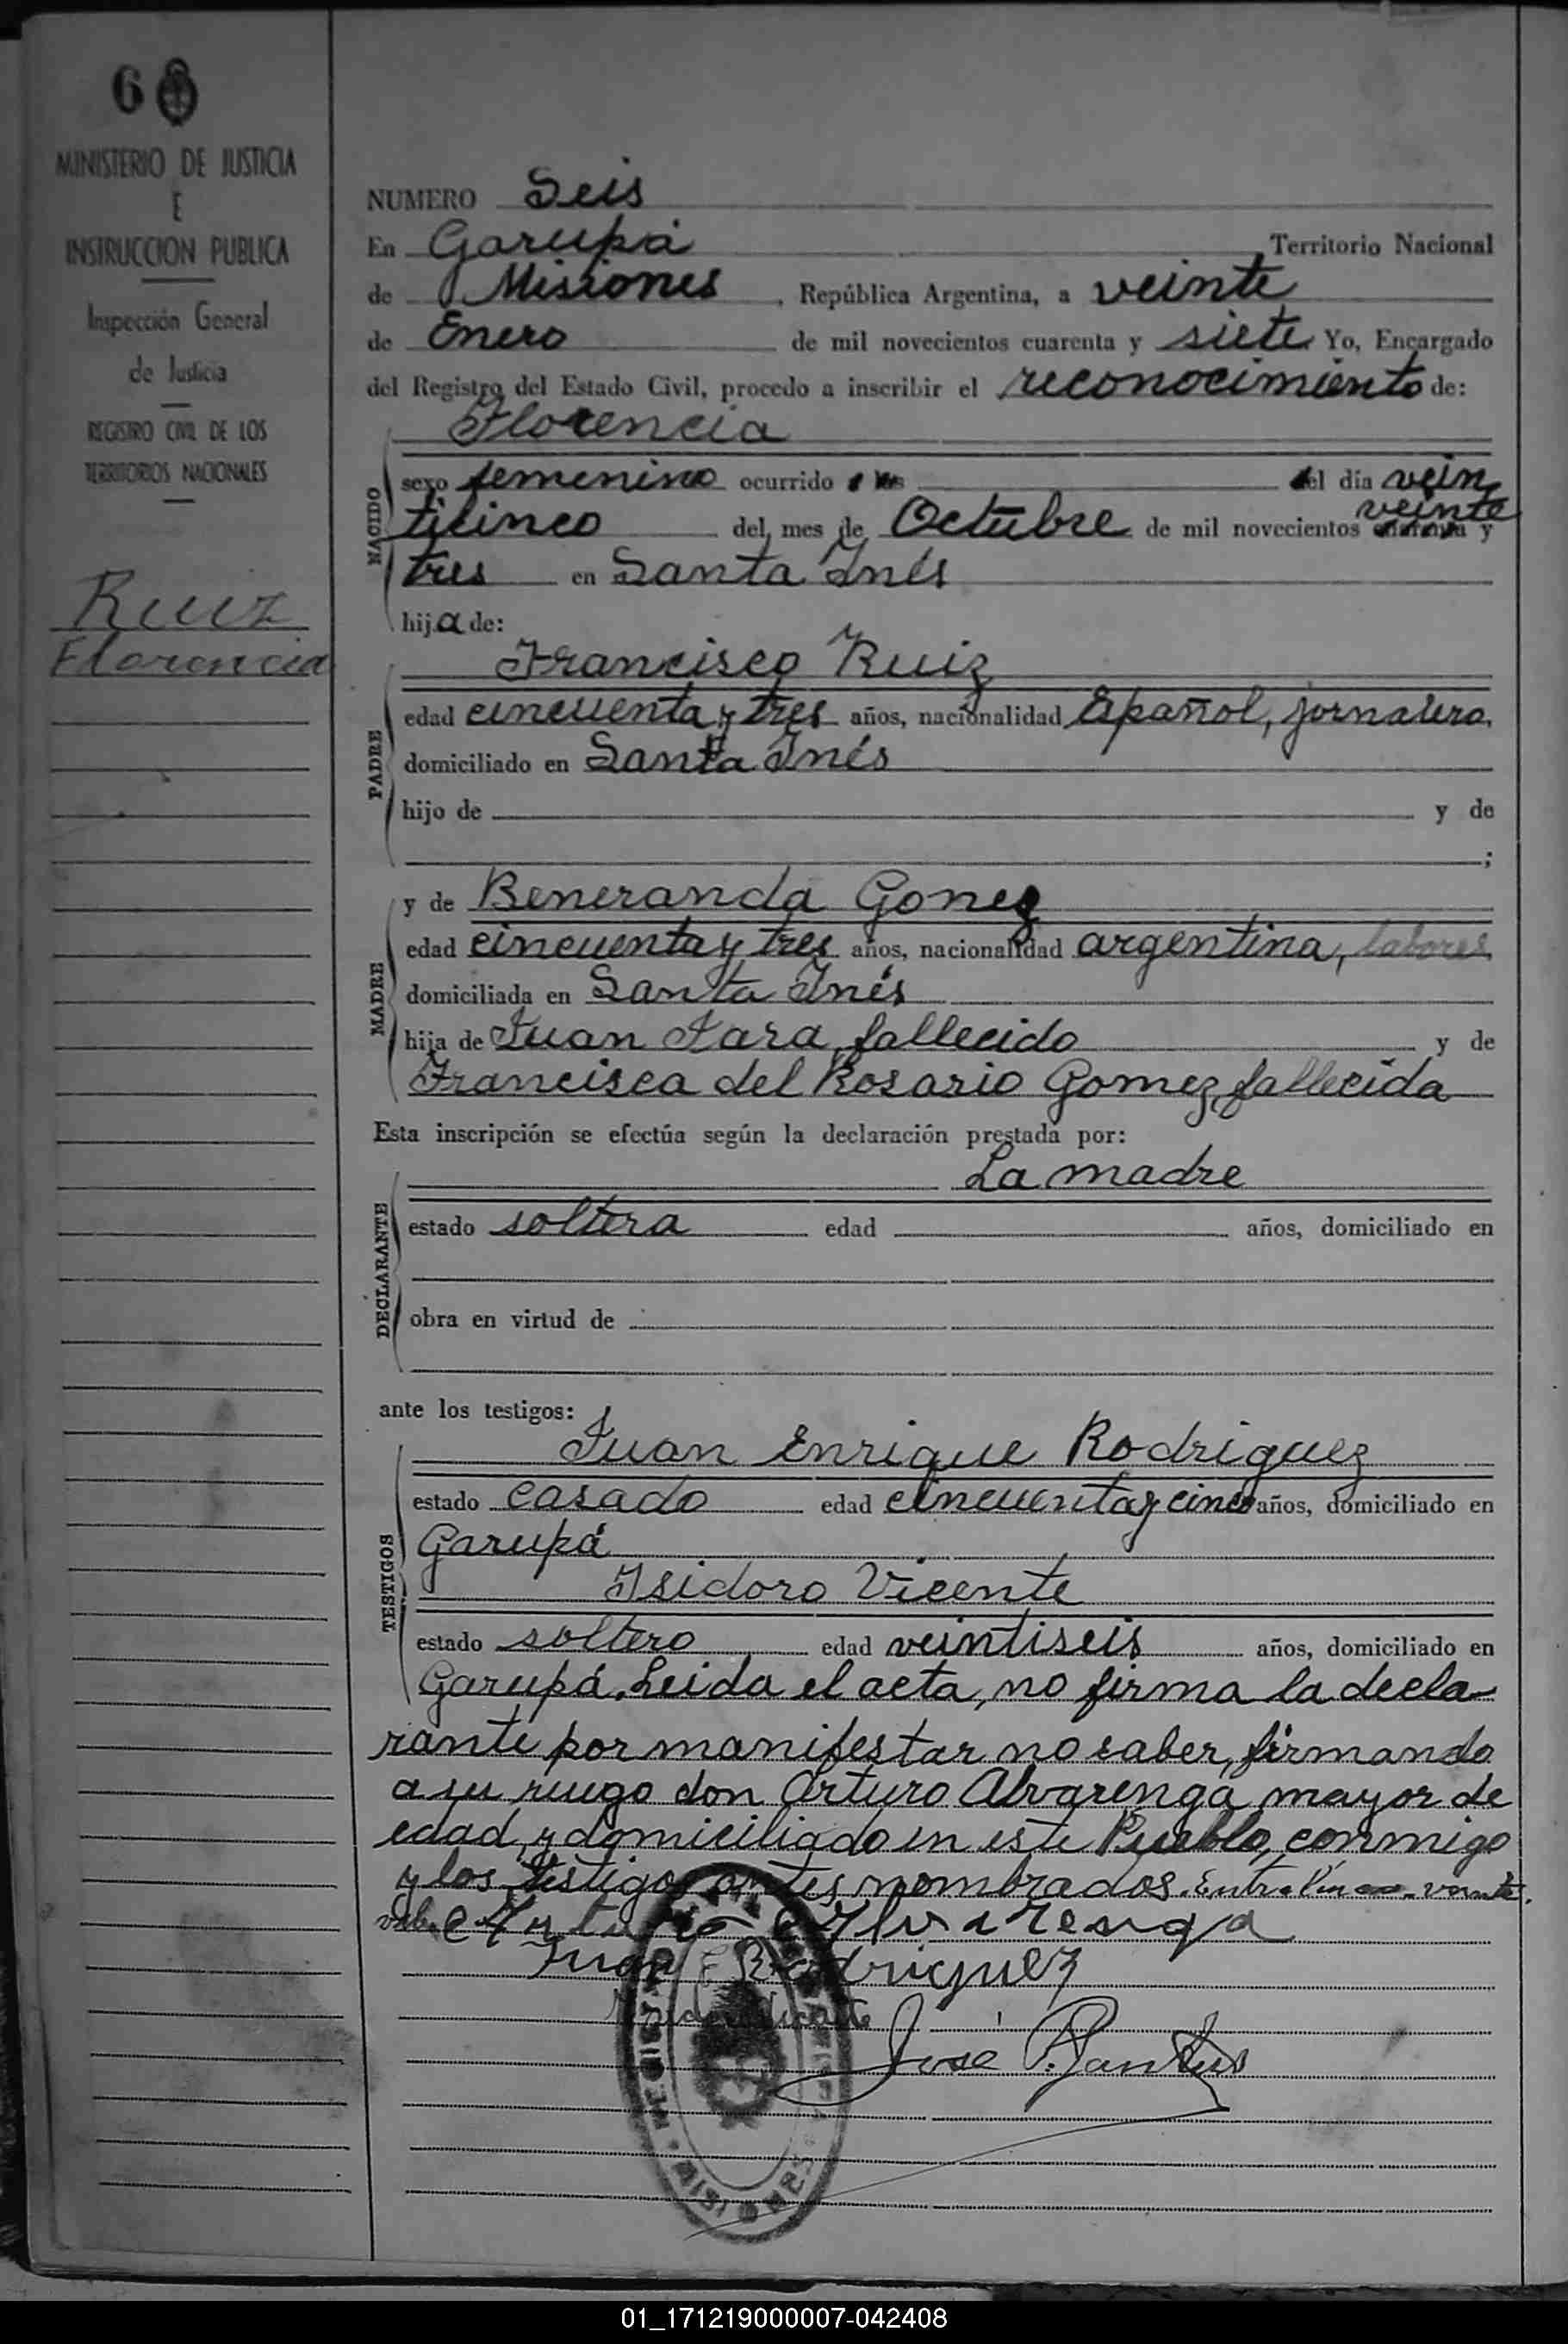 6
MINISTERIO DE JUSTICIA
E
INSTRUCCION PUBLICA
Inspección General
de Justicia
REGISTRO CIVIL DE LOS
TERRITORIOS NACIONALES
Ruiz
Florencia
NUMERO Seis
En Garupá Territorio Nacional
de Misiones, República Argentina, a veinte
de Enero de mil novecientos cuarenta y siete Yo, Encargado
del Registro del Estado Civil, procedo a inscribir el reconocimiento de:
NACIDO
Florencia
sexo femenino ocurrido el día vein
veinte
ticinco del mes de Octubre de mil novecientos cuarenta y
tres en Santa Inés
hija de:
PADRE
Francisco Ruiz
edad cincuenta y tres años, nacionalidad Español, jornalero,
domiciliado en Santa Inés
hijo de y de
;
MADRE
y de Beneranda Gomez
edad cincuenta y tres años, nacionalidad argentina, labores
domiciliada en Santa Inés
hija de Juan Jara, fallecido y de
Francisca del Rosario Gomez, fallecida
Esta inscripción se efectúa según la declaración prestada por:
DECLARANTE
La madre
estado soltera edad años, domiciliado en
obra en virtud de
ante los testigos:
TESTIGOS
Juan Enrique Rodriguez
estado casado edad cincuenta y cinco años, domiciliado en
Garupá
Isidoro Vicente
estado soltero edad veintiseis años, domiciliado en
Garupá. Leida el acta, no firma la decla
rante por manifestar no saber, firmando
a su ruego don Arturo Alvarenga, mayor de
edad y domiciliado en este Pueblo, conmigo
y los testigos antes nombrados. Entre líneas - veinte.
vale. Arturo Alvarenga
Juan E Rodriguez
Isidoro Vicente
José
MISIONES
01_171219000007-042408